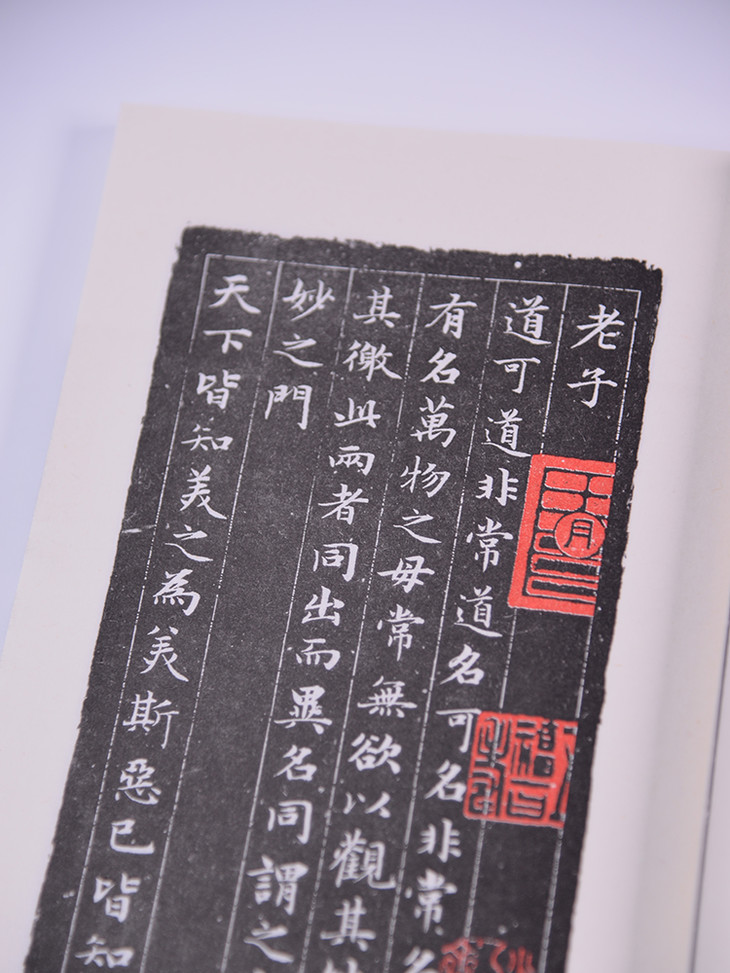 老子
道可道非常道名可名非常名
有名萬物之母常無欲以觀其妙
其徼此兩者同出而異名同謂之
妙之門
天下皆知美之為美斯惡已皆知